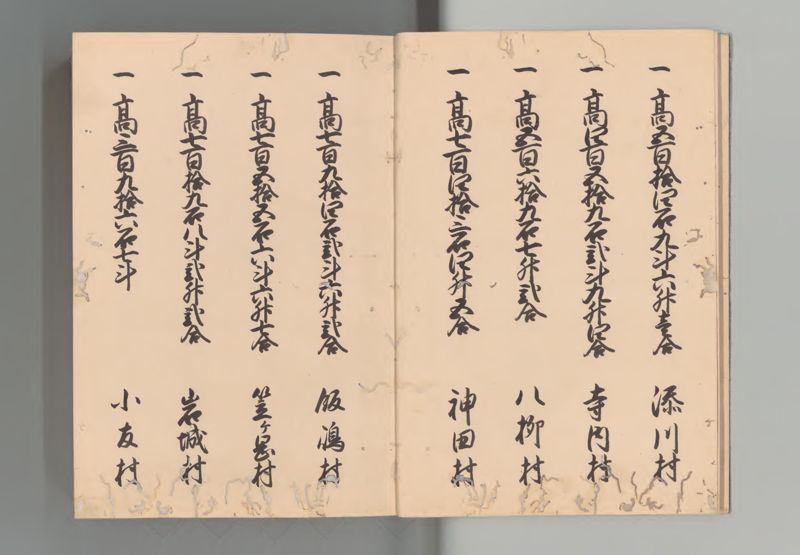 一 高五百拾四石九斗六升壱合 添川村
一 高四百五拾九石弐斗九升四合 寺内村
一 高五百六拾九石七升弐合 八柳村
一 高七百四拾三石四斗五合 神田村
一 高七百九拾四石弐斗六升弐合 飯嶋村
一 高七百五拾五石六斗六升七合 笠ヶ岡村
一 高七百拾九石八斗弐升弐合 岩城村
一 高三百九拾六石七斗 小友村